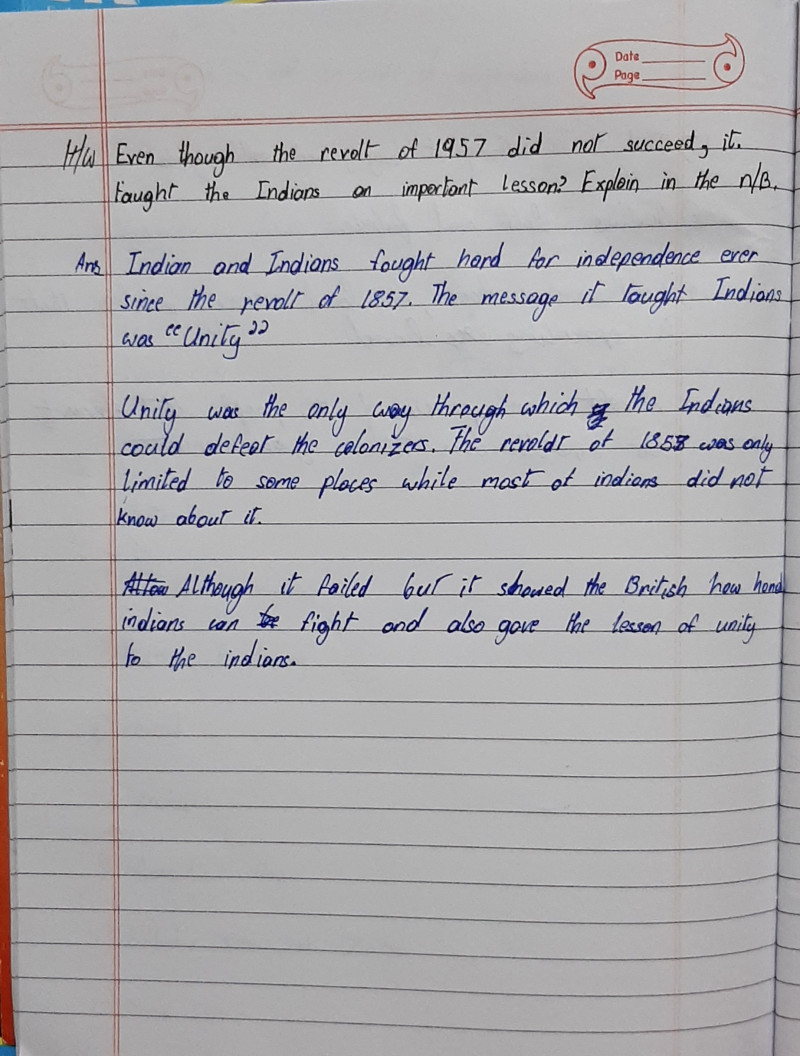 Date
Page
H/W Even though the revolt of 1957 did not succeed, it.
taught the Indians an important lesson? Explain in the n/B.
Ans Indian and Indians fought hard for independence ever
since the revolt of 1857. The message it taught Indians
was "Unity"
Unity was the only way through which the Indians
could defeat the colonizers. The revoldt of 1858 was only
limited to some places while most of indians did not
know about it.
Although it failed but it showed the British how hard
indians can fight and also gave the lesson of unity
to the indians.